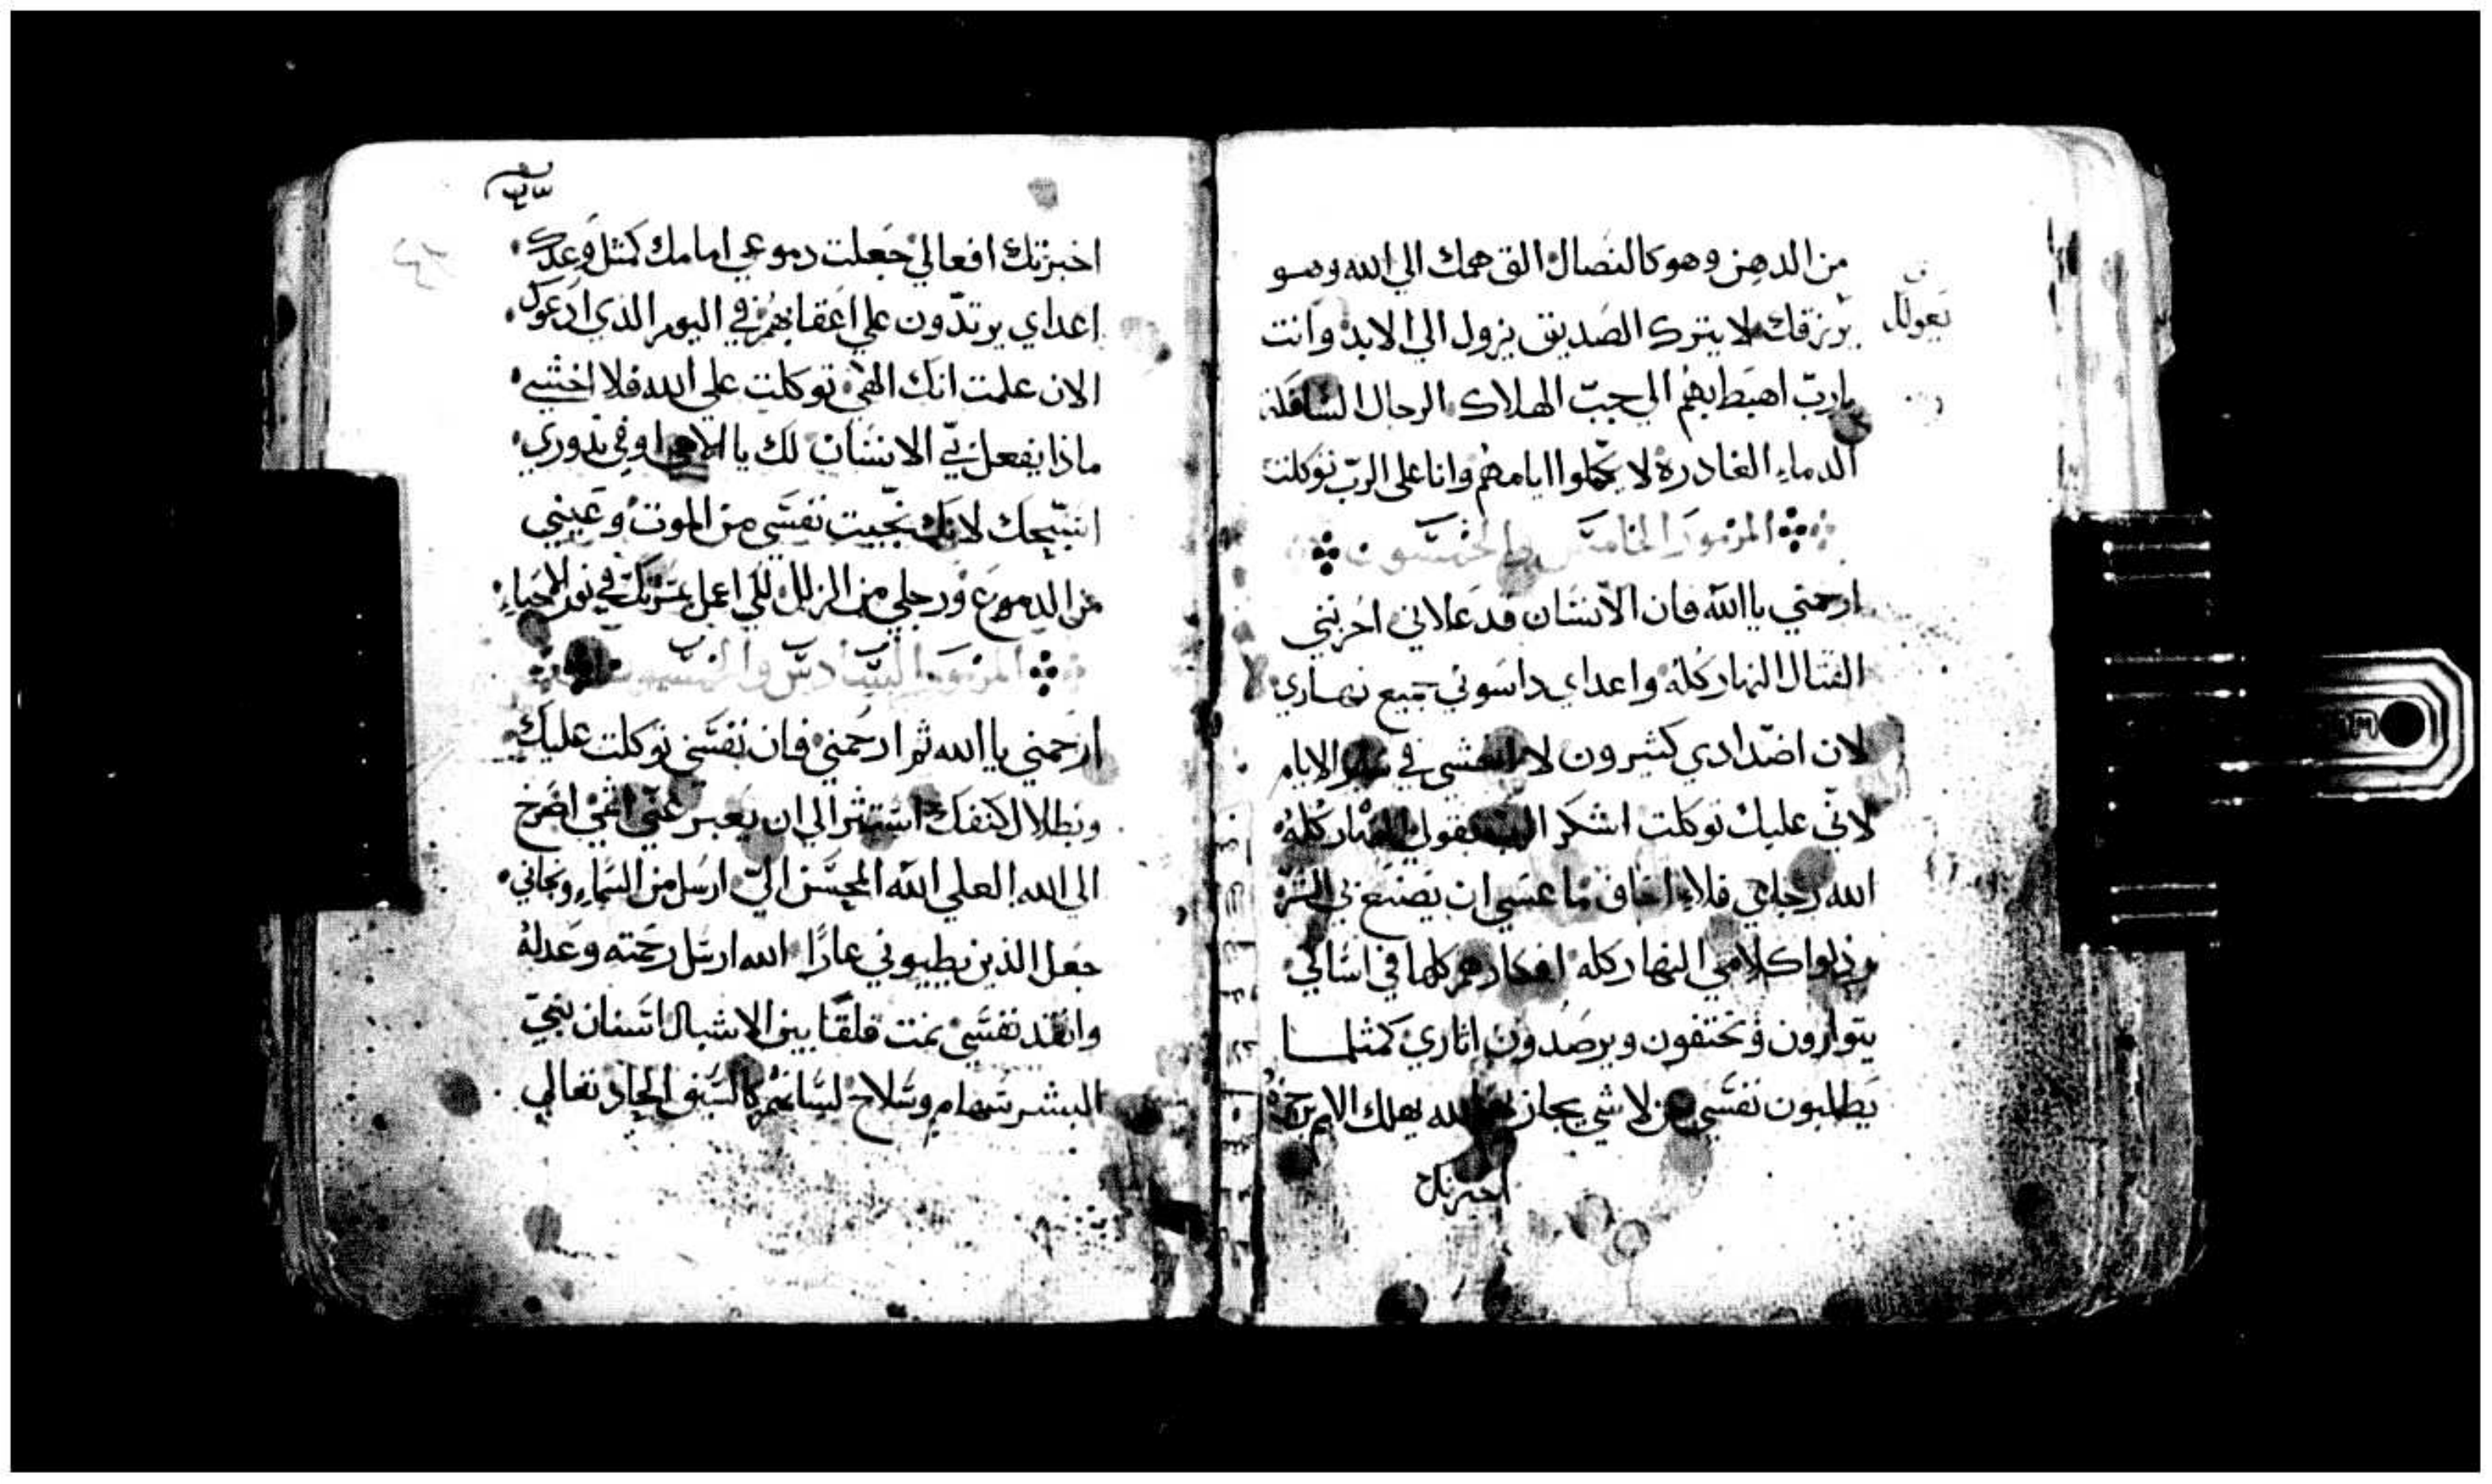 من الدهن وهو كالنصال الق همك الي الله وهو
يرزقك لا يترك الصديق يزول الي الابد وانت
يارب اهبط بهم الي جب الهلاك الرجال السافكة
الدماء الغادرة لا يكملوا ايامهم وانا علي الرب توكلت
المزمور الخامس والخمسون
ارحمني يا الله فان الانسان قد علاني احزنني
القتال النهار كله واعداي داسوني جميع نهاري
لان اضدادي كثيرون لا اخشي في الايام
لاني عليك توكلت اشكر النهار كله
الله رجاي فلا اخاف ما عسي ان يصنع بي البشر
رذلوا كلامي النهار كله افكارهم كلها في اساتي
يتوارون ويختفون ويرصدون اثاري كمثلما
يطلبون نفسي من لا شي يجازيهم الله يهلك الامم برجزه
اخبرتك
اخبرتك افعالي جعلت دموعي امامك كمثل وعدك
اعداي يرتدون علي اعقابهم في اليوم الذي ادعوك
الان علمت انك الهي توكلت علي الله فلا اخشي
ماذا يفعل بي الانسان لك يا الاهي اوفي نذوري
اسبحك لانك نجيت نفسي من الموت وعيني
من الدموع ورجلي من الزلل لكي اعمل مسرتك في نور الاحياء
المزمور السادس والخمسون
ارحمني يا الله ثم ارحمني فان نفسي توكلت عليك
وبظلال كنفك استتر الي ان يعبر عني اثمي اصرخ
الي الله العلي الله المحسن الي ارسل من السماء ونجاني
جعل الذين يطيوني عارا الله ارسل رحمته وعدله
وانقذ نفسي نمت قلقا بين الاشبال اسنان بني
البشر سهام وسلاح لسانهم كالسيف الحاد تعالي